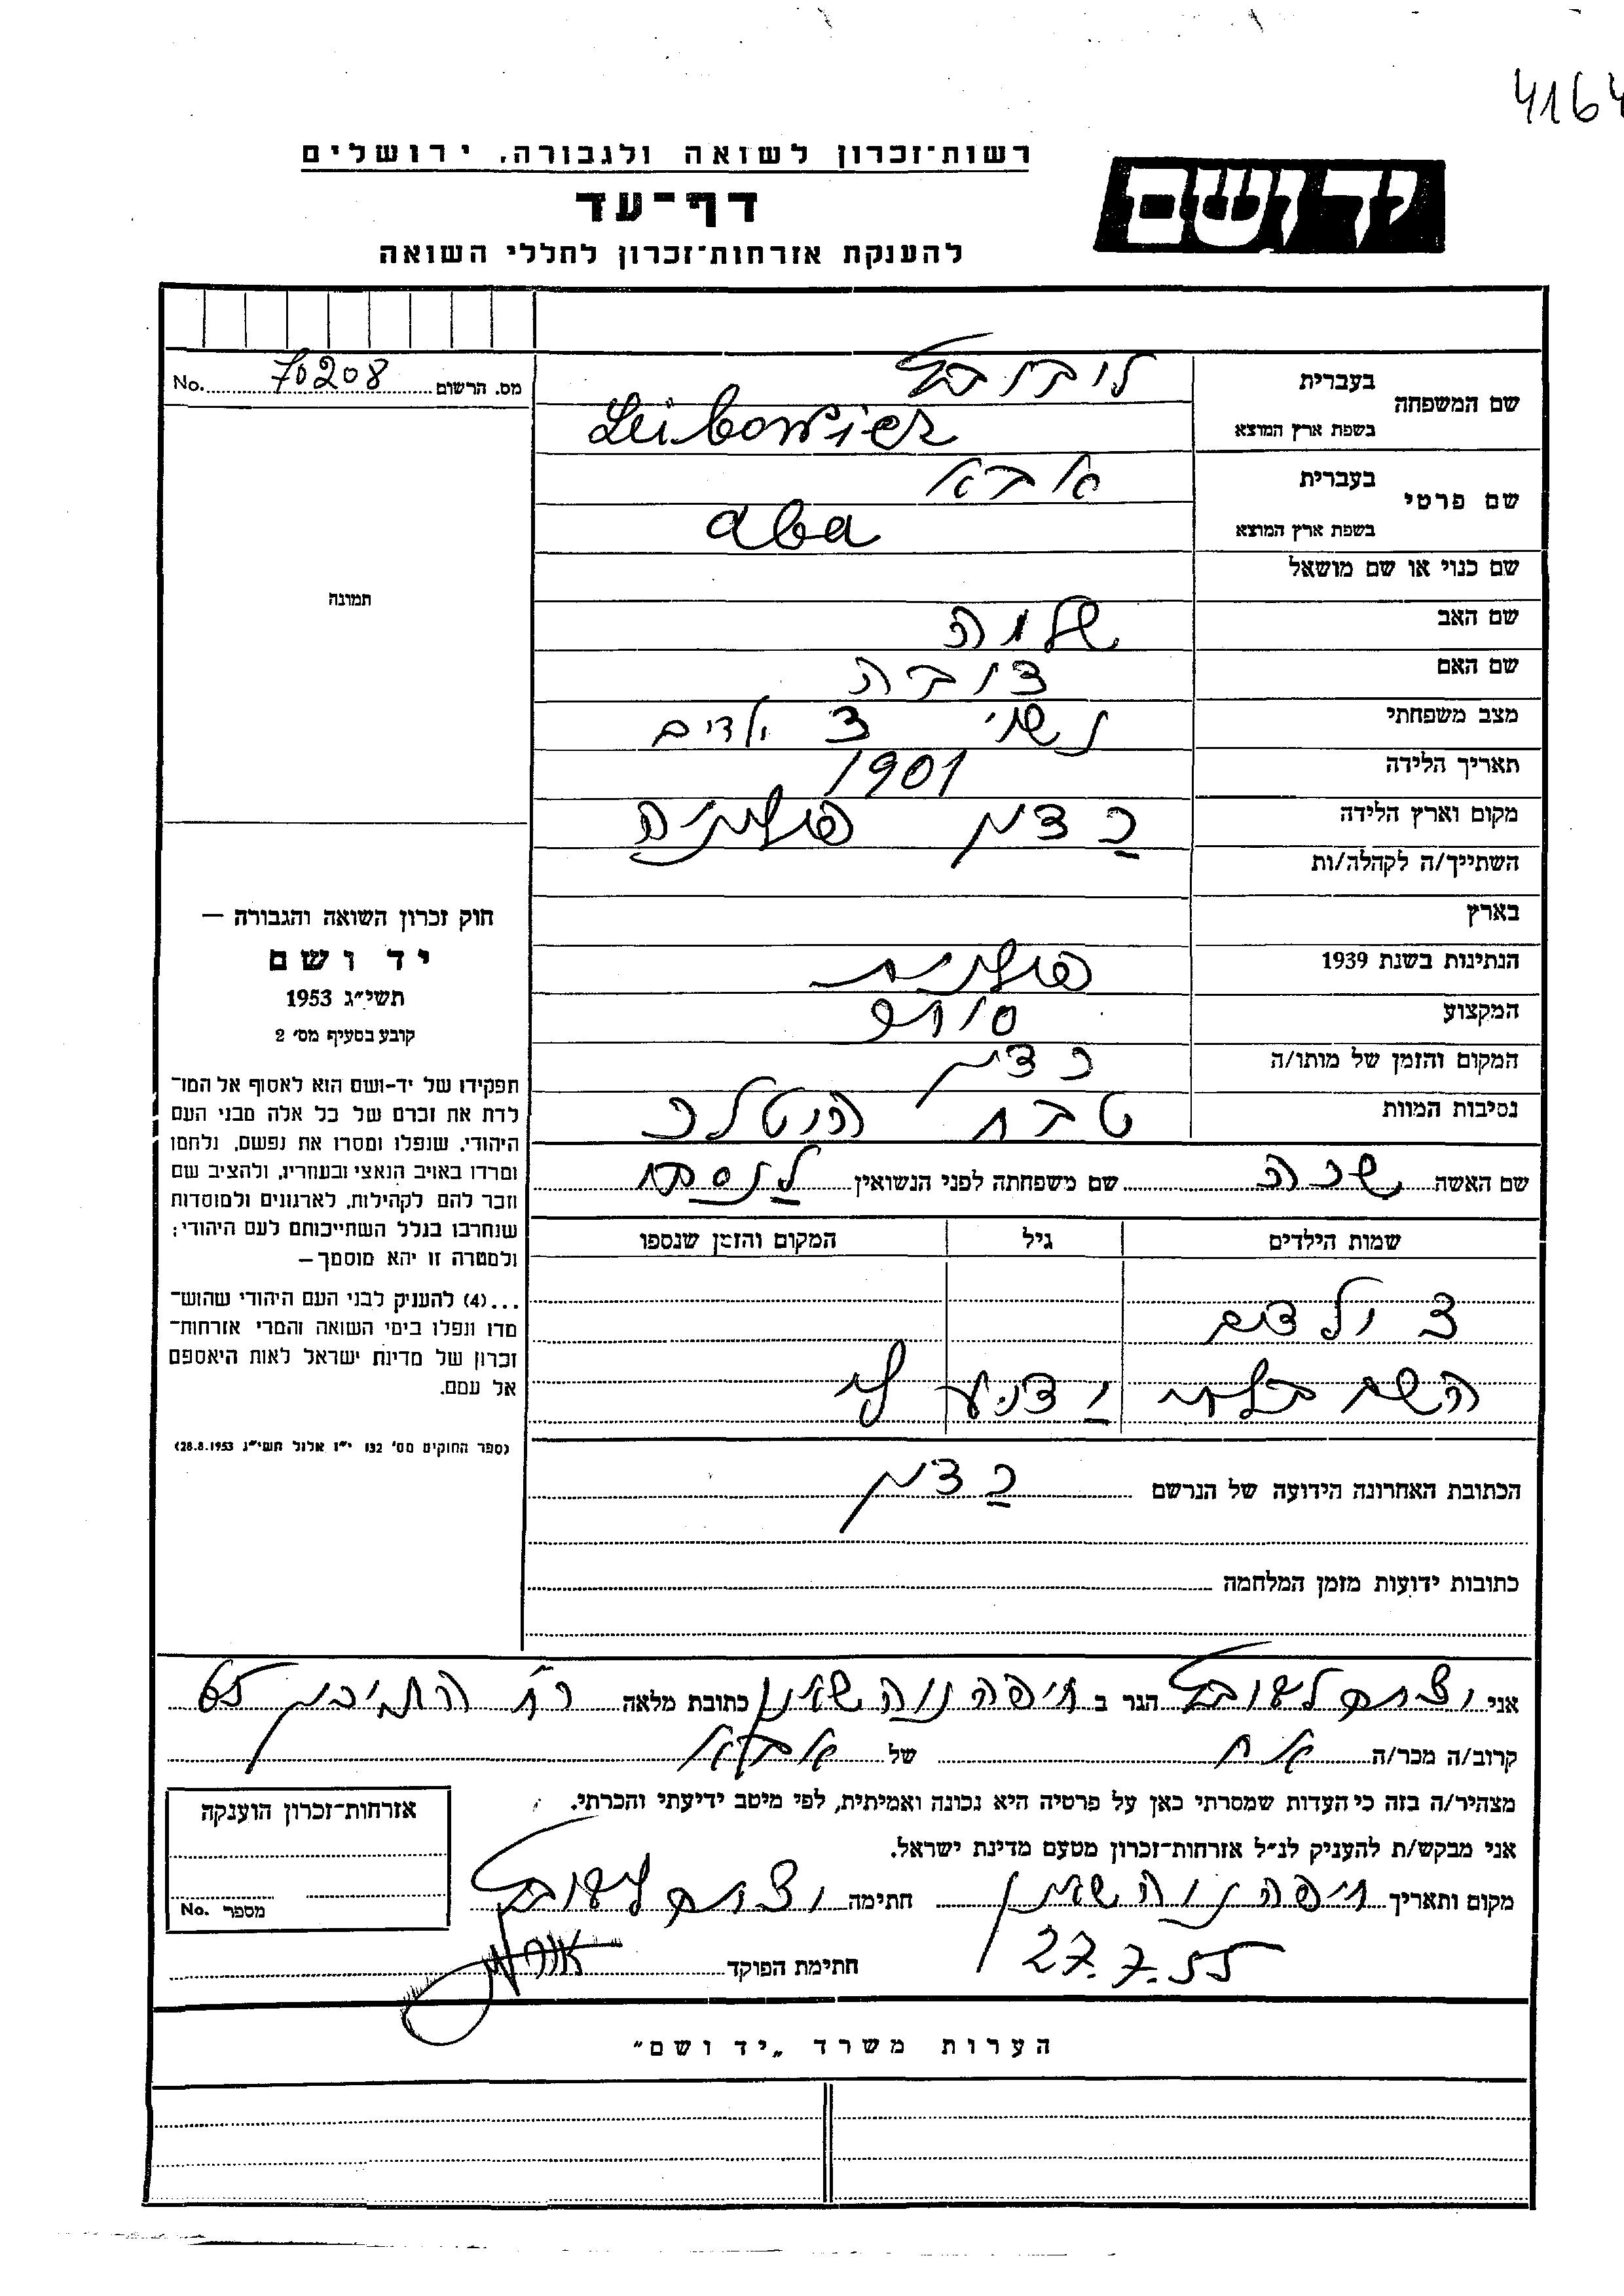 4164
ידושם
רשות־זכרון לשואה ולגבורה, ירושלים
דף־עד
להענקת אזרחות־זכרון לחללי השואה
מס. הרשום 70208 No.
שם המשפחה
בעברית
בשפת ארץ המוצא Leibowier
שם פרטי
בעברית אבא
בשפת ארץ המוצא aba
שם כנוי או שם מושאל
שם האב
שם האם
מצב משפחתי נשוי 3 ילדים
תאריך הלידה 1901
מקום וארץ הלידה פולניה
השתייך/ה לקהלה/ות
בארץ
הנתינות בשנת 1939 פולנית
המקצוע סוחר
המקום והזמן של מותו/ה
נסיבות המוות טבח היטלר
שם האשה שרה שם משפחתה לפני הנשואין
שמות הילדים גיל המקום והזמן שנספו
3 ילדים
השם בלתי ידוע לי
הכתובת האחרונה הידועה של הנרשם
כתובות ידועות מזמן המלחמה
תמונה
חוק זכרון השואה והגבורה —
יד ושם
תשי״ג 1953
קובע בסעיף מס׳ 2
תפקידו של יד-ושם הוא לאסוף אל המו־
לדת את זכרם של כל אלה מבני העם
היהודי, שנפלו ומסרו את נפשם, נלחמו
ומרדו באויב הנאצי ובעוזריו, ולהציב שם
וזכר להם לקהילות, לארגונים ולמוסדות
שנחרבו בגלל השתייכותם לעם היהודי;
ולמטרה זו יהא מוסמך—
...(4) להעניק לבני העם היהודי שהוש־
מדו ונפלו בימי השואה והמרי אזרחות־
זכרון של מדינת ישראל לאות היאספם
אל עמם.
(ספר החוקים מס׳ 132 י״ז אלול תשי״ג 28.8.1953)
אני הגר ב חיפה נוה שאנן כתובת מלאה רח 65
קרוב/ה מכר/ה אח של אבא
מצהיר/ה בזה כי העדות שמסרתי כאן על פרטיה היא נכונה ואמיתית, לפי מיטב ידיעתי והכרתי.
אני מבקש/ת להעניק לנ״ל אזרחות־זכרון מטעם מדינת ישראל.
מקום ותאריך חיפה נוה שאנן חתימה
27.7.55
חתימת הפוקד
אזרחות־זכרון הוענקה
מספר No.
הערות משרד „יד ושם״